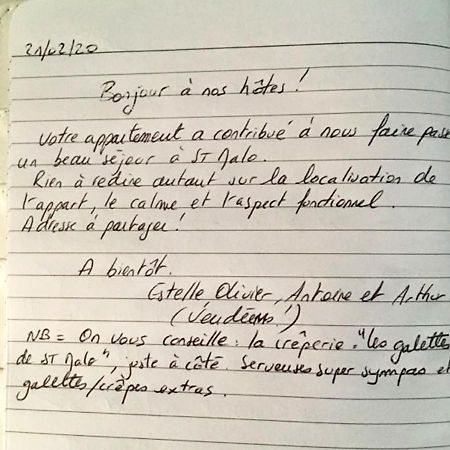 21/02/20
Bonjour à nos hôtes !
Votre appartement a contribué à nous faire passe
un beau séjour à St Malo.
Rien à redire autant sur la localisation de
l'appart, le calme et l'aspect fonctionnel.
Adresse à partager !
A bientôt.
Estelle Olivier, Antoine et Arthur
(Vendéens !)
NB = On vous conseille : la crêperie : "les galettes
de St Malo", juste à côté. Serveuses super sympas et
galettes/crêpes extras.